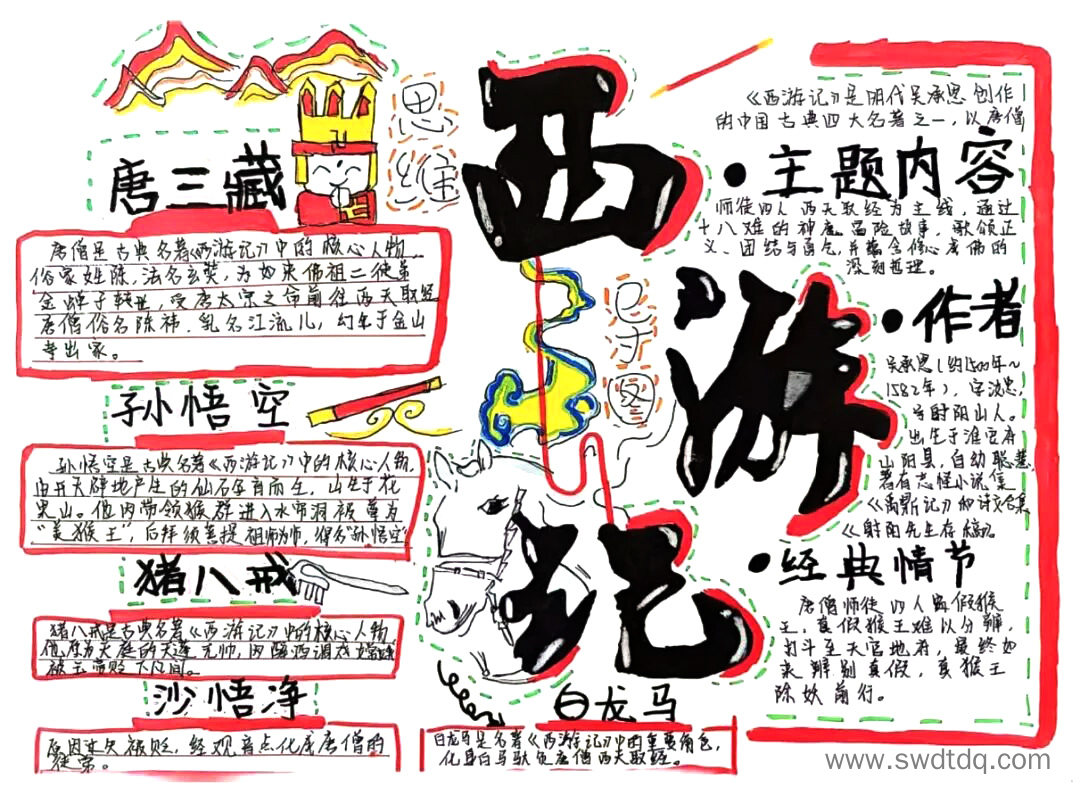 思
维
导
图
西
游
记
唐三藏
唐僧是古典名著《西游记》中的核心人物
俗家姓陈,法名玄奘,为如来佛祖二徒弟
金蝉子转世,受唐太宗之命前往西天取经
唐僧俗名陈祎,乳名江流儿,幼年于金山
寺出家。
孙悟空
孙悟空是古典名著《西游记》中的核心人物,
由开天辟地产生的仙石孕育而生,出生于花
果山。他因带领猴群进入水帘洞被尊为
“美猴王”,后拜须菩提祖师为师,得名“孙悟空”
猪八戒
猪八戒是古典名著《西游记》中的核心人物
他原为天庭的天蓬元帅,因醉酒调戏嫦娥
被玉帝贬下凡间。
沙悟净
原因失欠被贬,经观音点化成唐僧的
徒弟。
白龙马
白龙马是名著《西游记》中的重要角色,
化身白马驮负唐僧西天取经。
《西游记》是明代吴承恩创作
的中国古典四大名著之一,以唐僧
·主题内容
师徒四人西天取经为主线,通过
十八难的神魔冒险故事,歌颂正
义、团结与勇气,并蕴含修心唐佛的
深刻哲理。
·作者
吴承恩(约1500年~
1582年),字汝忠,
号射阳山人。
出生于淮安府
山阳县,自幼聪慧,
著有志怪小说集
《禹鼎记》和诗文合集
《射阳先生存稿》。
·经典情节
唐僧师徒四人遇假猴
王,真假猴王难以分辨,
打斗至天宫地府,最终如
来辨别真假,真猴王
除妖前行。
www.swdtdq.com